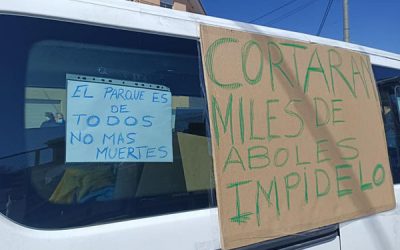 EL PARQUE ES
DE
TODOS
NO MAS
MUERTES
CORTARAN
MILES DE
ABOLES
IMPIDELO